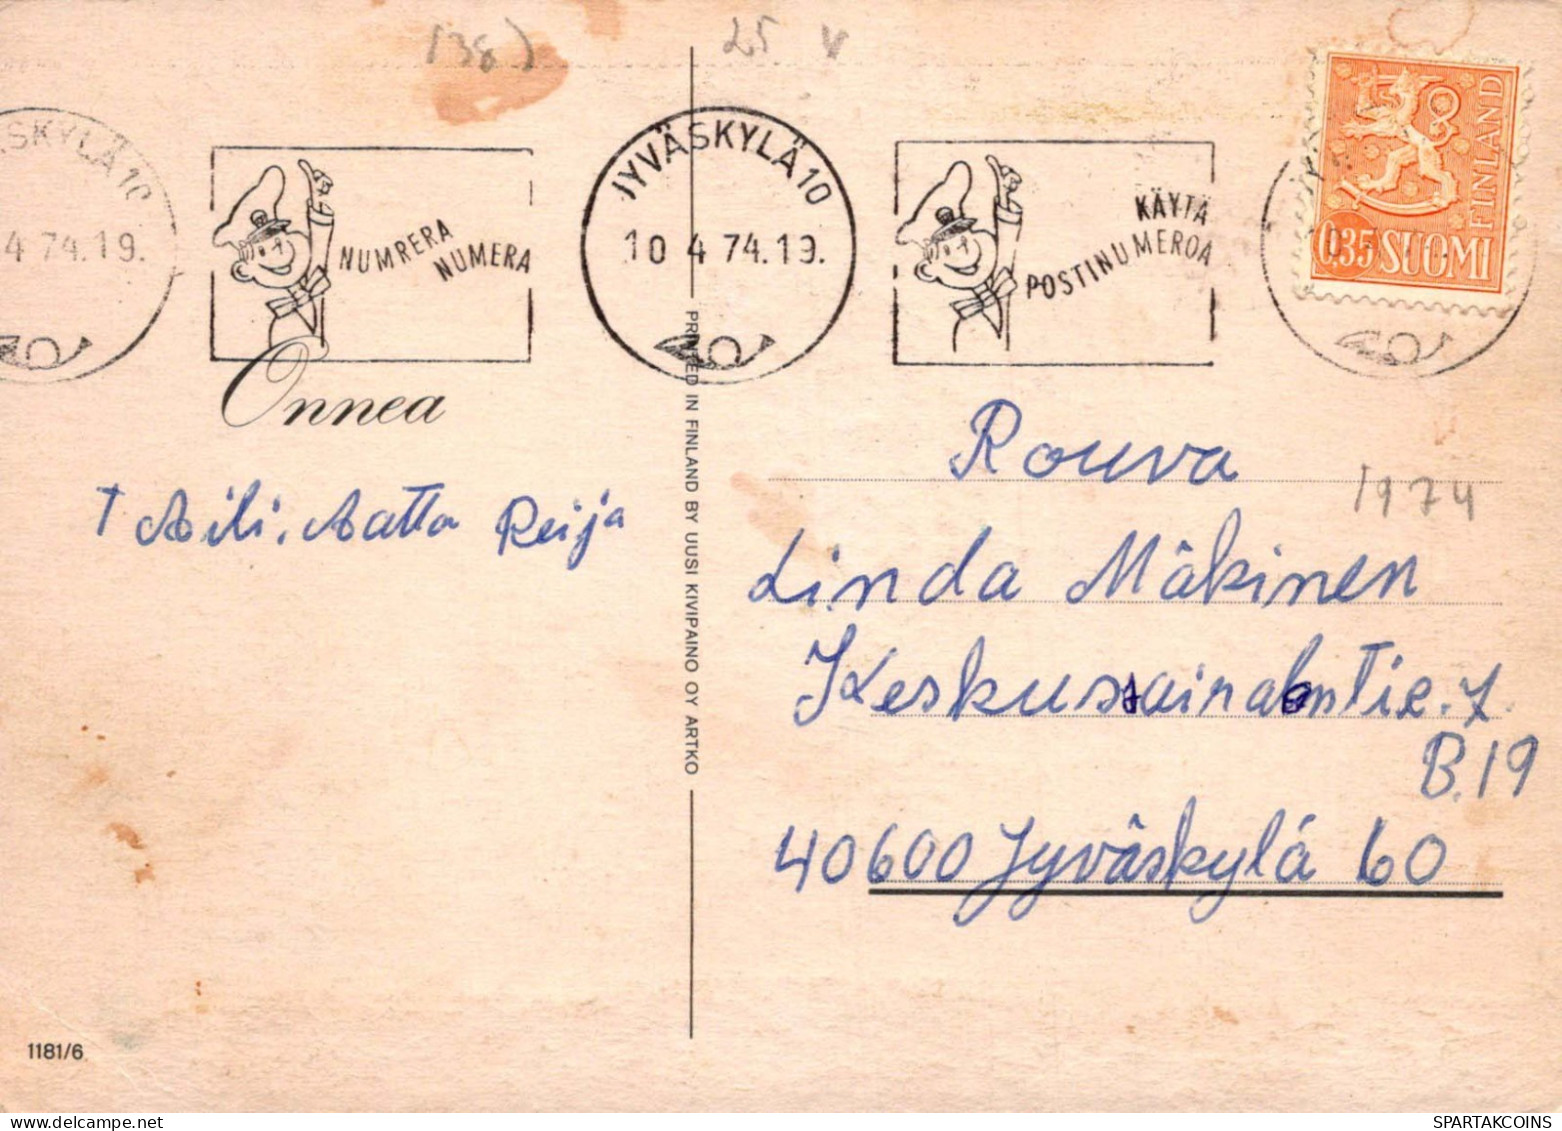 138)
25 v
JYVÄSKYLÄ 10
10 4 74.19.
SKYLÄ 10
4 74.19.
NUMRERA
NUMERA
KÄYTÄ
POSTINUMEROA
FINLAND
0,35 SUOMI
Onnea
T Aili, Aatto Reija
PRINTED IN FINLAND BY UUSI KIVIPAINO OY ARTKO
Rouva
1974
Linda Mäkinen
Keskussairalantie.
B.19
40600 Jyväskylä 60
1181/6
SPARTAKCOINS